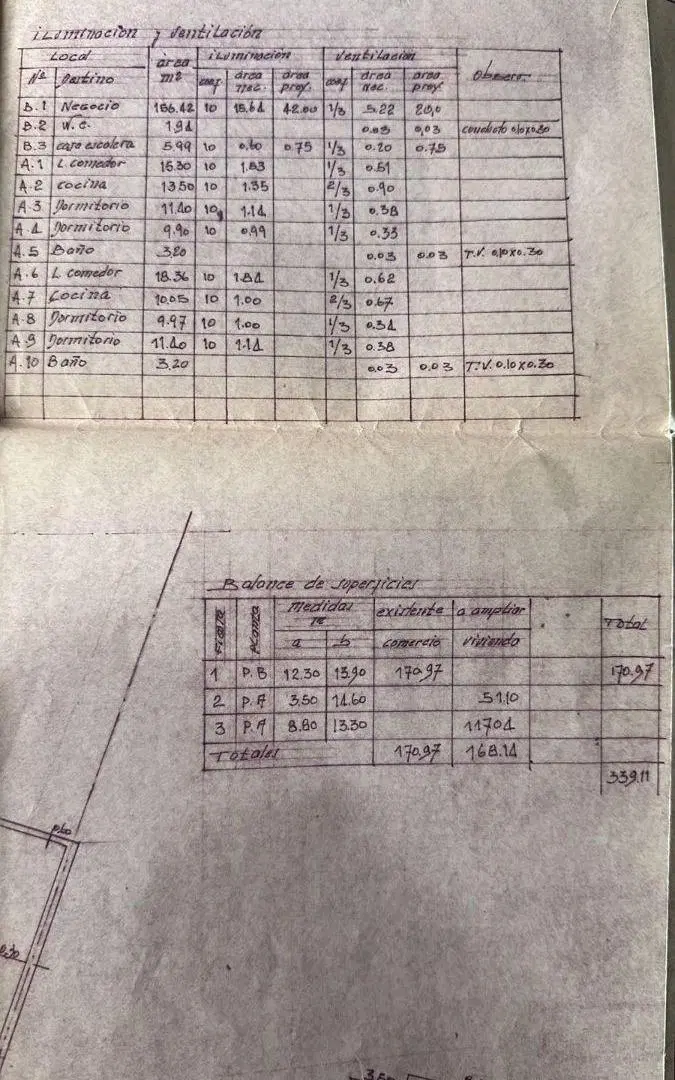 iluminacion y ventilación
Local área m² iluminación ventilación Observ.
Nº Destino coef. área nec. área proy. coef. área nec. área proy.
B.1 Negocio 156.42 10 15.64 42.00 1/3 5.22 20,0
B.2 W.C. 1.94 0.03 0,03 conducto 0.10x0.30
B.3 caja escalera 5.99 10 0.60 0.75 1/3 0.20 0.75
A.1 L. comedor 15.30 10 1.53 1/3 0.51
A.2 cocina 13.50 10 1.35 2/3 0.90
A.3 Dormitorio 11.40 10 1.14 1/3 0.38
A.4 Dormitorio 9.90 10 0.99 1/3 0.33
A.5 Baño 3,20 0.03 0.03 T.V. 0.10x0.30
A.6 L comedor 18.36 10 1.84 1/3 0.62
A.7 Cocina 10.05 10 1.00 2/3 0.67
A.8 Dormitorio 9.97 10 1.00 1/3 0.34
A.9 Dormitorio 11.40 10 1.14 1/3 0.38
A.10 Baño 3.20 0.03 0.03 T.V. 0.10x0.30
Balance de superficies
Planta medidas existente a ampliar Total
a b comercio vivienda
1 P.B 12.30 13.90 170.97 170.97
2 P.A 3.50 14.60 51.10
3 P.A 8.80 13.30 117.04
Totales 170.97 168.14
339.11
0.30
3.50